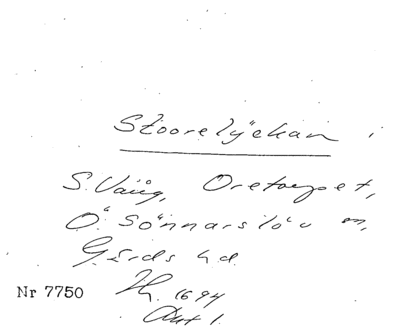 Stoorelyckan i
S. Vång, Oretorpet,
Ö. Sönnarslöv sn,
Gärds hd.
Nr 7750 1694
Akt 1.